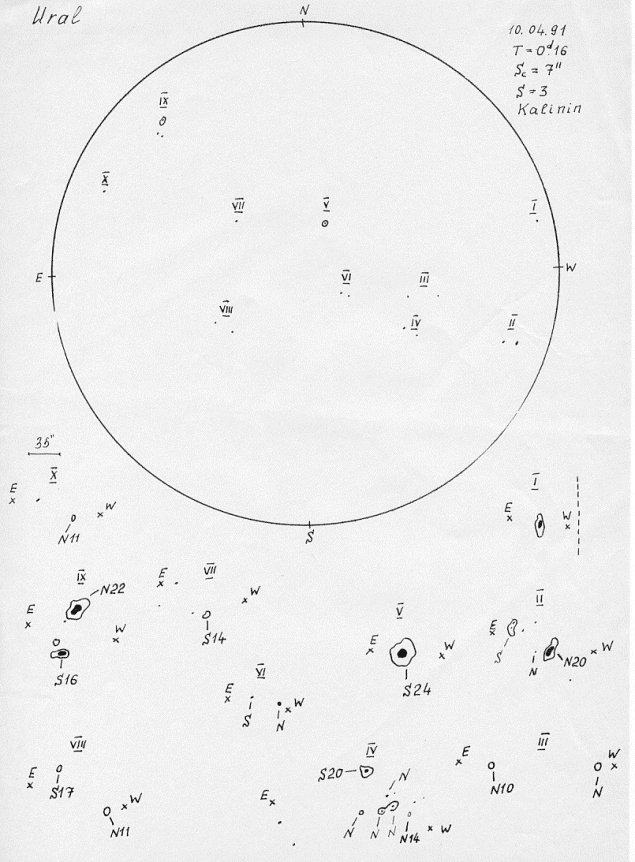 Ural
N
10.04.91
T = 0ᵈ.16
Sc = 7"
S = 3
Kalinin
IX
X
VII
V
I
E
W
VI
III
VIII
IV
II
S
35"
X
E
W
N11
I
E
W
IX
N22
E
W
S16
VII
E
W
S14
V
E
W
S24
II
E
S
N
N20
W
VI
E
S
N
W
VIII
E
S17
W
N11
IV
S20
N
E
N
N
N
N14
W
III
E
N10
W
N